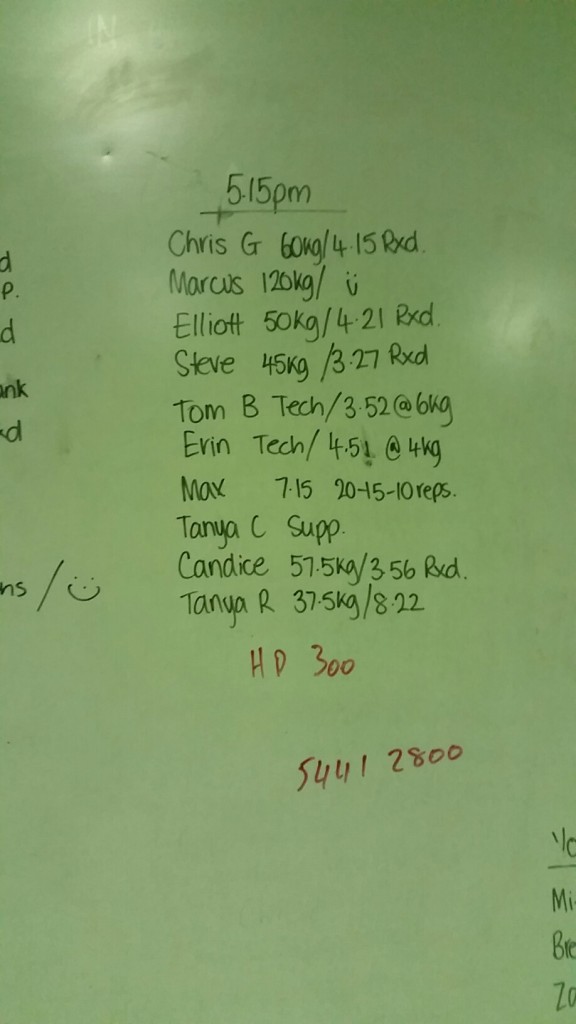 5.15pm
Chris G 60kg/4.15 Rxd.
Marcus 120kg/
Elliott 50kg/4.21 Rxd.
Steve 45kg/3.27 Rxd
Tom B Tech/3.52@6kg
Erin Tech/4.51 @ 4kg
Max 7.15 20-15-10 reps.
Tanya C Supp.
Candice 57.5kg/3.56 Rxd.
Tanya R 37.5kg/8.22
HD 300
5441 2800